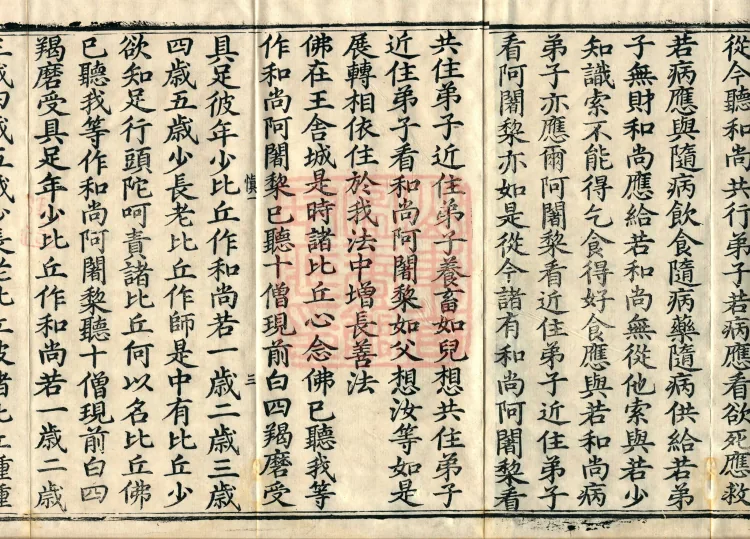 從今聽和尚共行弟子若病應看欲死應救
若病應與隨病飲食隨病藥隨病供給若弟
子無財和尚應給若和尚無從他索與若少
知識索不能得乞食得好食應與若和尚病
弟子亦應爾阿闍黎看近住弟子近住弟子
看阿闍黎亦如是從今諸有和尚阿闍黎看
共住弟子近住弟子養畜如兒想共住弟子
近住弟子看和尚阿闍黎如父想汝等如是
展轉相依住於我法中增長善法
佛在王舍城是時諸比丘心念佛已聽我等
作和尚阿闍黎已聽十僧現前白四羯磨受
慎一 三
具足彼年少比丘作和尚若一歳二歳三歳
四歳五歳少長老比丘作師是中有比丘少
欲知足行頭陀呵責諸比丘何以名比丘佛
已聽我等作和尚阿闍黎聽十僧現前白四
羯磨受具足年少比丘作和尚若一歳二歳
三歳四歳五歳少長老比丘彼諸比丘種種